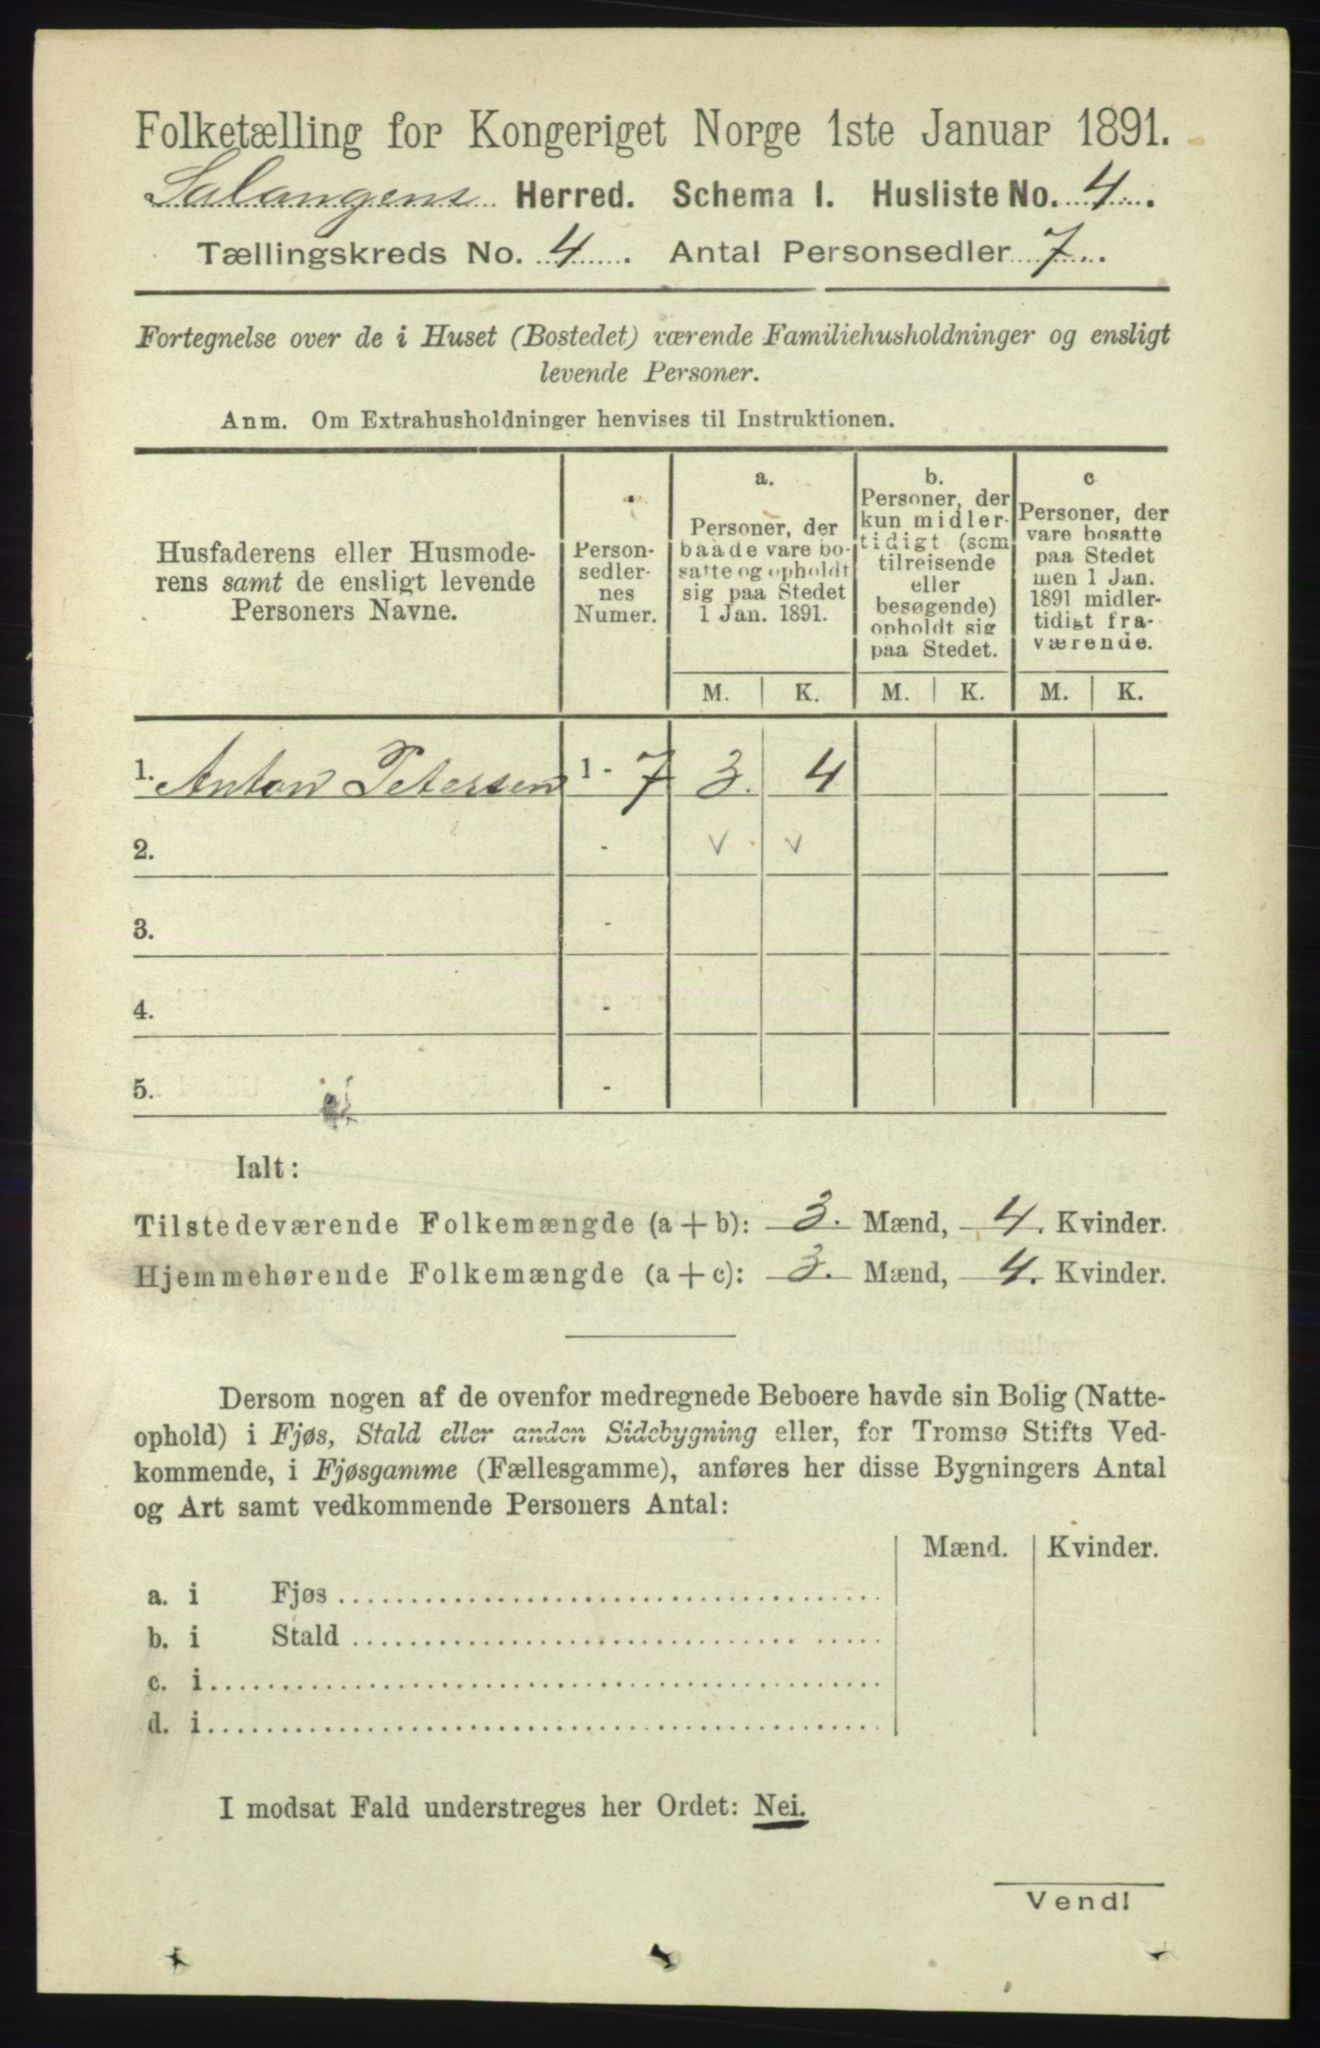 Folketælling for Kongeriget Norge 1ste Januar 1891.
Salangens Herred. Schema I. Husliste No. 4.
Tællingskreds No. 4. Antal Personsedler 7.
Fortegnelse over de i Huset (Bostedet) værende Familiehusholdninger og ensligt
levende Personer.
Anm. Om Extrahusholdninger henvises til Instruktionen.
Husfaderens eller Husmode-
rens samt de ensligt levende
Personers Navne.
Person-
sedler-
nes
Numer.
a.
Personer, der
baade vare bo-
satte og opholdt
sig paa Stedet
1 Jan. 1891.
b.
Personer, der
kun midler-
tidigt (som
tilreisende
eller
besøgende)
opholdt sig
paa Stedet.
c
Personer, der
vare bosatte
paa Stedet
men 1 Jan.
1891 midler-
tidigt fra-
værende.
M. K. M. K. M. K.
1. Anton Petersen 1 - 7 3. 4
2. - v v
3. -
4. -
5. -
Ialt:
Tilstedeværende Folkemængde (a + b): 3. Mænd, 4. Kvinder.
Hjemmehørende Folkemængde (a + c): 3. Mænd, 4. Kvinder.
Dersom nogen af de ovenfor medregnede Beboere havde sin Bolig (Natte-
ophold) i Fjøs, Stald eller anden Sidebygning eller, for Tromsø Stifts Ved-
kommende, i Fjøsgamme (Fællesgamme), anføres her disse Bygningers Antal
og Art samt vedkommende Personers Antal:
Mænd. Kvinder.
a. i Fjøs
b. i Stald
c. i
d. i
I modsat Fald understreges her Ordet: Nei.
Vend!